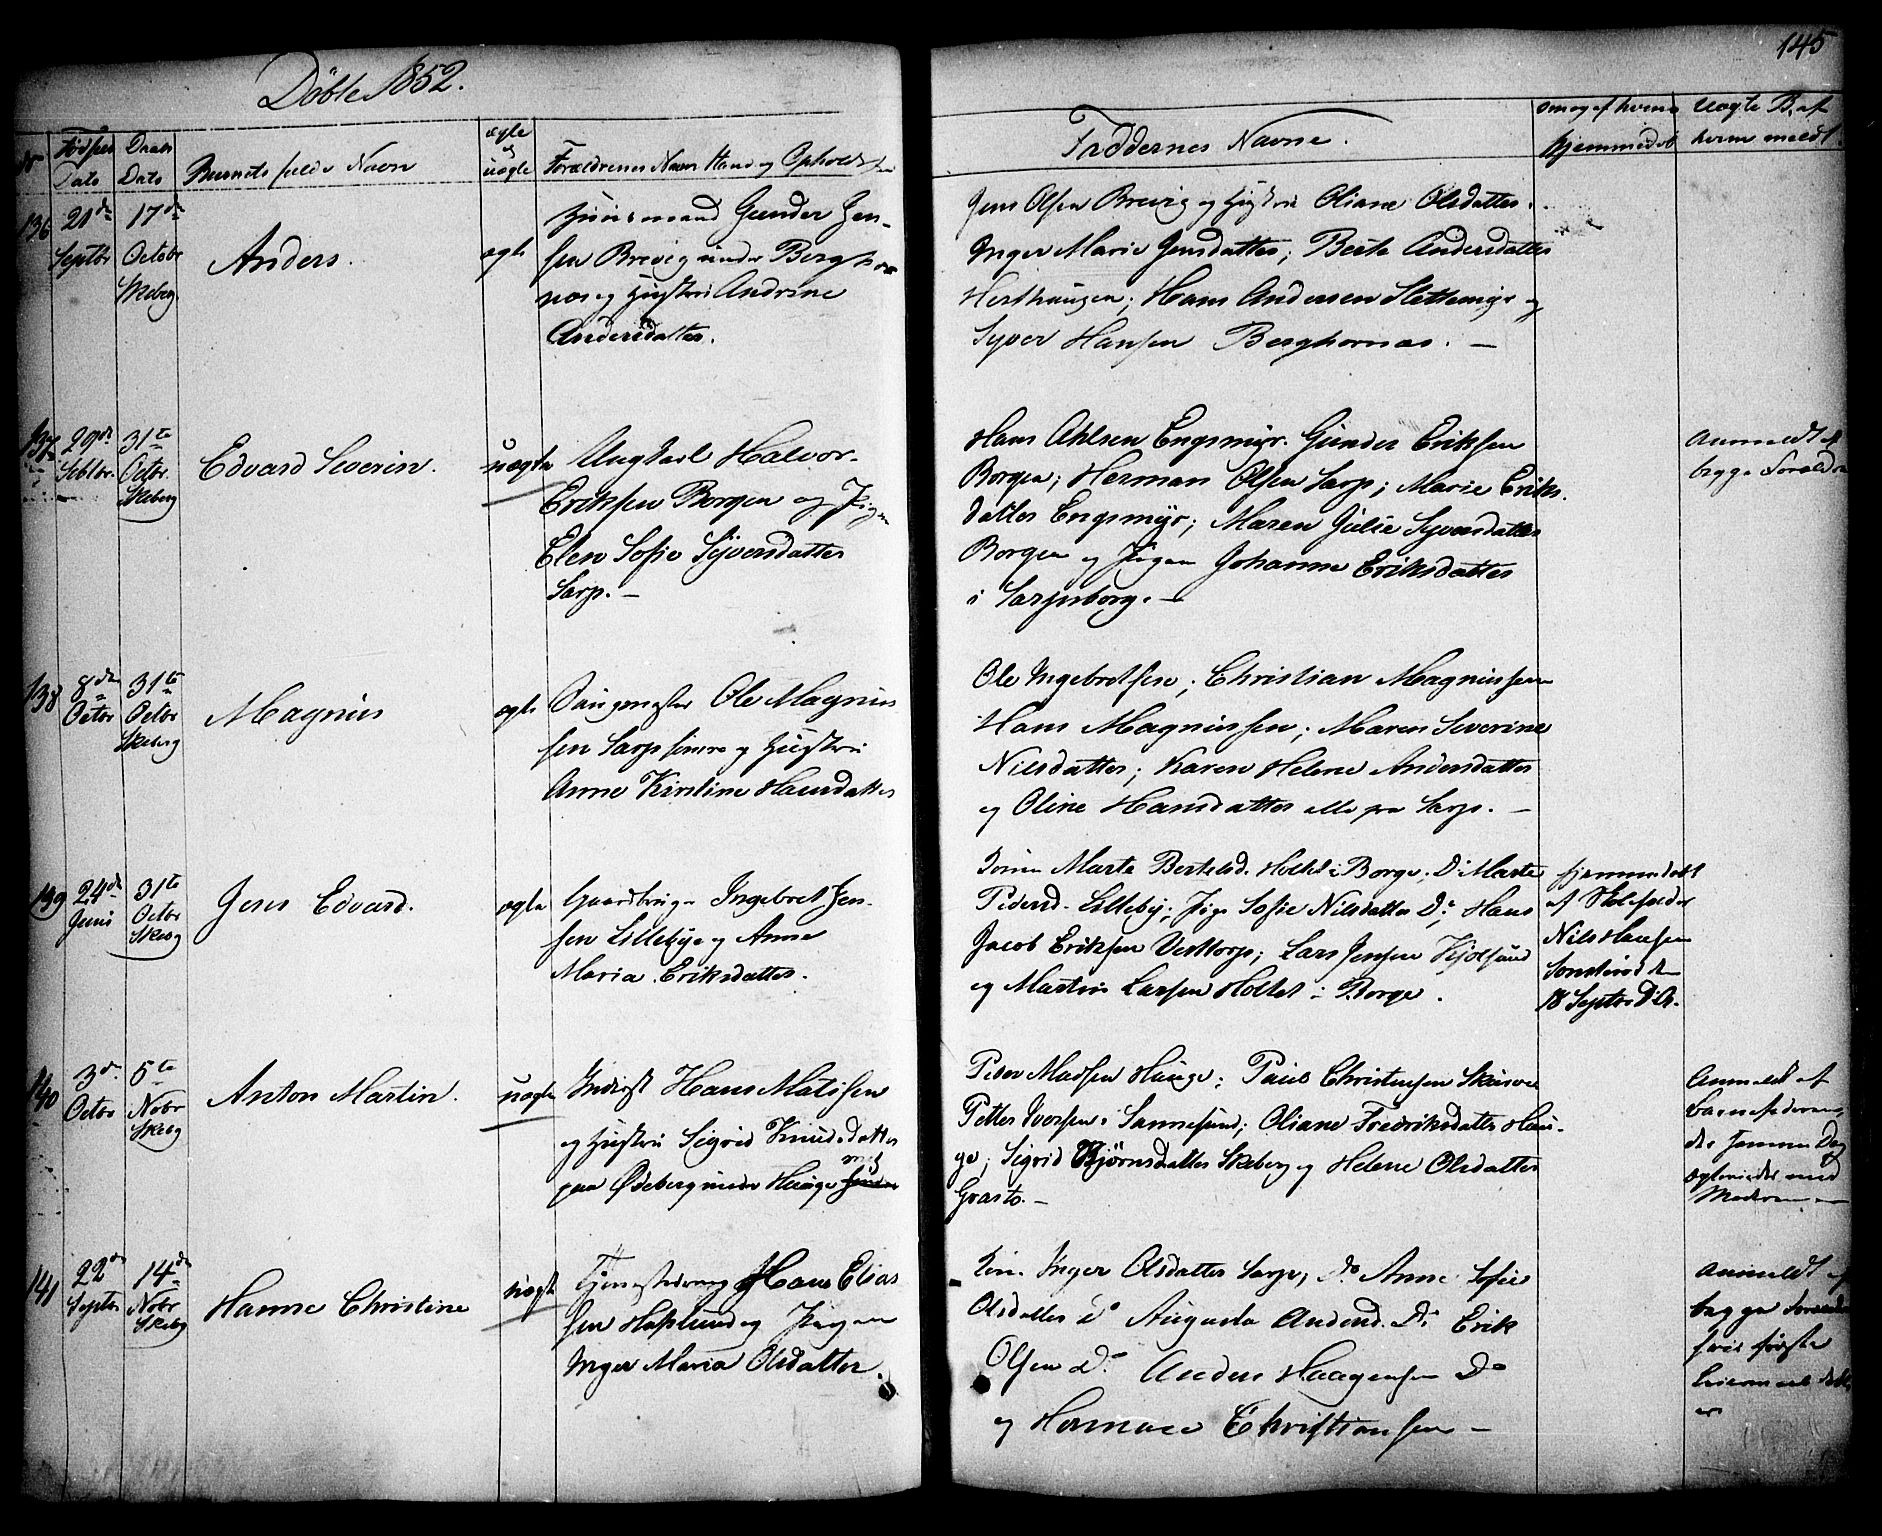 145
Döbte 1852.
No Fødsels Dato Daabs Dato Barnets fulde Navn ægte og uægte Forældrenes Navn Stand og Opholdsted
Faddernes Navne. om og af hvem hjemmedøbt Uægte B. af hvem meldt.
136 21de Septbr 17de Octobr Skeberg
Anders.
ægte
Huusmand Gunder Jen-
sen Brevig under Berghor
næs og Hustru Andrine
Andersdatter.
Jens Olsen Brevig og Hustru Oliane Olsdatter.
Inger Marie Jensdatter; Berte Andersdatter
Hans Andersen Slettemyr og
Syver Hansen Berghornæs. —
137 29de Septbr. 31te Octbr. Skeberg
Edvard Severin.
uægte
Ungkarl Halvor
Eriksen Borgen og Pigen
Elen Sofie Syversdatter
Sarp. —
Hans Ahlsen Engsmyr. Gunder Eriksen
Borgen; Herman Olsen Sarp; Marie Eriks.
datter Engsmyr; Maren Julie Syversdatter
Borgen og Pigen Johanne Eriksdatter
i Sarpsborg. —
Anmeldt af
begge Forældre
138 8de Octbr 31te Octbr Skeberg
Magnus
ægte
Ole Magnus
sen Sarp og Hustru
Anne Kirstine Hansdatter
Ole Ingebretsen; Christian Magnussen
Hans Magnussen; Maren Severine
Nilsdatter; Karen Helene Andersdatter
og Oline Hansdatter alle paa Sarp. —
139 24de Juni 31te Octbr Skebg
Jens Edvard.
ægte
Gaardbruger Ingebret Jen-
sen Lillebye og Anne
Maria Eriksdatter.
Marte Bertelsd. Holtet i Borge; Do Marte
Pedersd. Lilleby; Pige Sofie Nilsdatter Do; Hans
Jacob Eriksen Vesttorp; Lars Jensen Kjolsund
og Martin Larsen Holtet i Borge.
hjemmedøbt
af Skoleholder
Nils Hansen
18 Septbr D. A.
140 3de Octbr 5te Nobr Skebg
Anton Martin.
uægte
Inderst Hans Matissen
og Hustru Sigrid Knudsdatter
paa Ødeberg under Hauge
Peder Madsen Hauge; Paul Christensen Skarvee
Petter Iversen i Sannesund; Oliane Fredriksdatter Hau-
ge; Sigrid Björnsdatter Skeberg og Helene Olsdatter
Grasto. —
Anmeldt af
Barnefaderen
der samme Dag
ægteviedes med
Moderen —
141 22de Septbr 14de Nobr Skebg
Hanne Christine
uægte
Tjenestedreng Hans Elias
sen Haslund og Pigen
Inger Maria Olsdatter.
Inger Olsdatter Sarp, do Anne Sofie
Olsdatter do Augusta Andersd. Do Erik
Olsen do. Anders Haagensen Do
og Herman Christiansen —
Anmeldt af
begge Forældre
første
Leiermaal
er